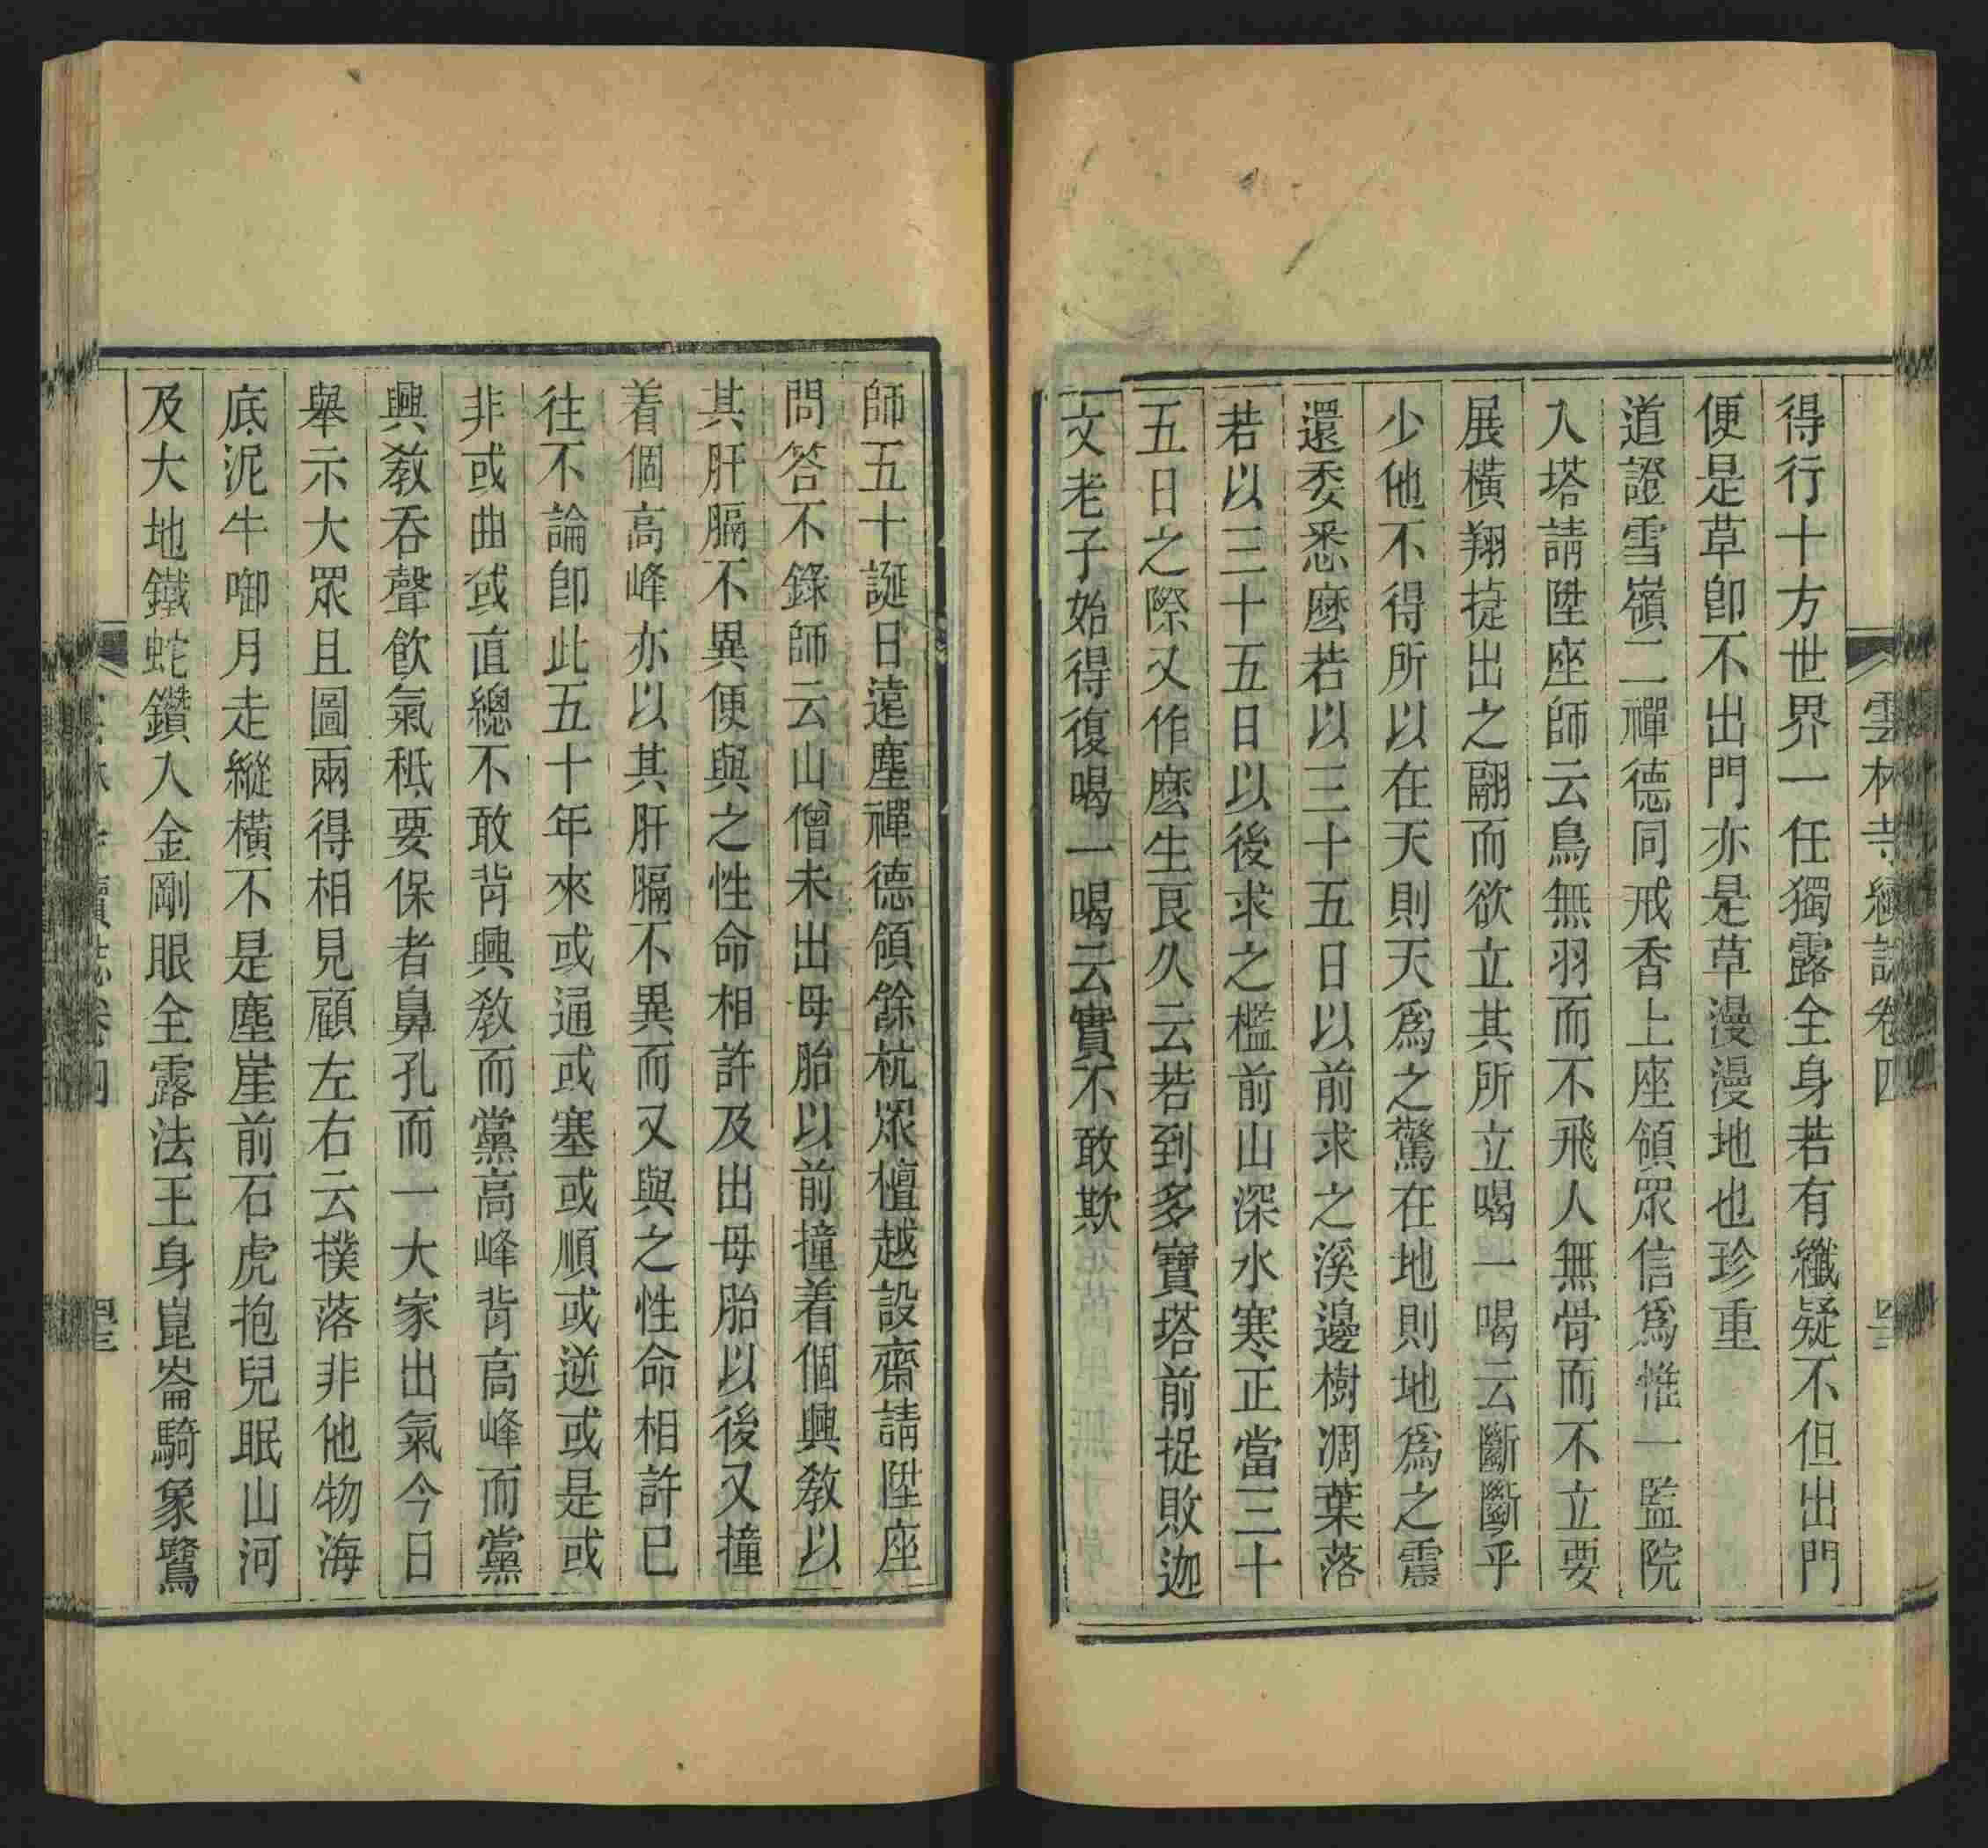 雲林寺續誌卷四
得行十方世界一任獨露全身若有纖疑不但出門
便是草卽不出門亦是草漫漫地也珍重
道證雪嶺二禪德同戒香上座領眾信爲惟一監院
入塔請陞座師云鳥無羽而不飛人無骨而不立要
展橫翔㨗出之翮而欲立其所立喝一喝云斷斷乎
少他不得所以在天則天爲之驚在地則地爲之震
還委悉麽若以三十五日以前求之溪邊樹凋葉落
若以三十五日以後求之檻前山深水寒正當三十
五日之際又作麽生良久云若到多寶塔前捉敗迦
文老子始得復喝一喝云實不敢欺
師五十誕日遠塵禪德領餘杭眾檀越設齋請陞座
問答不錄師云山僧未出母胎以前撞着個興教以
其肝膈不異便與之性命相許及出母胎以後又撞
着個高峰亦以其肝膈不異而又與之性命相許已
往不論卽此五十年來或通或塞或順或逆或是或
非或曲或直總不敢背興教而黨高峰背高峰而黨
興教吞聲飲氣秪要保者鼻孔而一大家出氣今日
舉示大眾且圖兩得相見顧左右云撲落非他物海
底泥牛啣月走縱橫不是塵崖前石虎抱兒眠山河
及大地鐵蛇鑽入金剛眼全露法王身崑崙騎象鷺